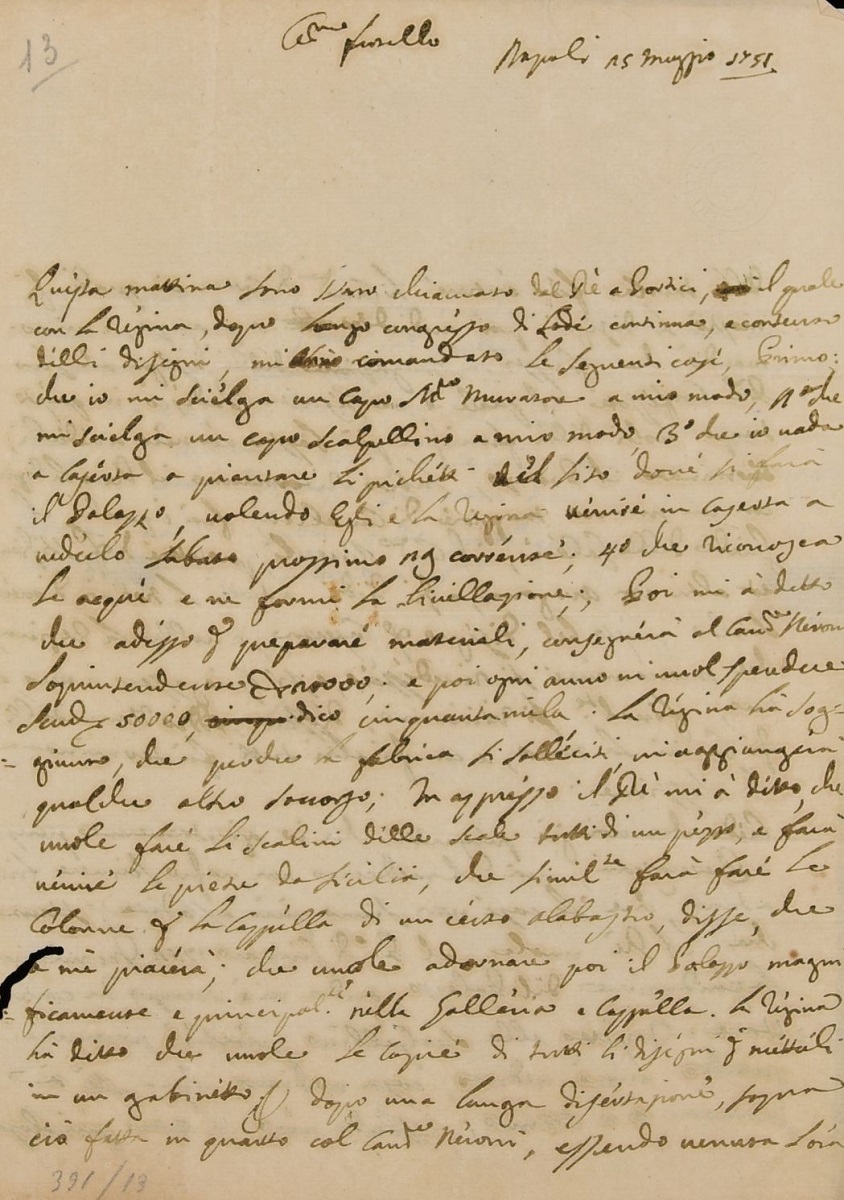 13
Car.mo fratello
Napoli 15 Maggio 1751
Questa mattina sono stato chiamato dal Rè a Portici, il quale
con la Regina, dopo longo congresso di Lode continua, e
delli disegni, mi comandato le seguenti cose, Primo:
che io mi scielga un capo M.ro Muratore a mio modo, 2° che
mi scielga un capo scalpellino a mio modo, 3° che io vada
a Caserta a piantare li pichetti nel sito dove si farà
il Palazzo, volendo Egli e la Regina venire in Caserta a
vederlo sabato prossimo 19 corrente; 4° che riconosca
le acque e ne formi la Livellazione; Poi mi à detto
che adesso p preparare materiali, consegnerà al Cav.re Neroni
Soprintendente 20000; e poi ogni anno ni vuol spendere
Scudi 50000, dico cinquantamila. La Regina hà sog=
=giunto, che perche la fabrica si solleciti, vi aggiungerà
qualche altro soccorso; In appresso il Rè mi à detto, che
vuole fare li scalini delle scale tutti di un pezzo, e farà
venire le pietre da Sicilia, che simil.te farà fare le
Colonne p la Cappella di un certo alabastro, disse, che
a me piacerà; che vuole adornare poi il Palazzo magni
=ficamente e principal.te nella Galleria e Cappella. La Regina
hà detto che vuole le copie di tutti li disegni p metterli
in un gabinetto dopo una lunga disertazione, sopra
ciò fatta in quarto col Cav.re Neroni, essendo venuta l'ora
391/13